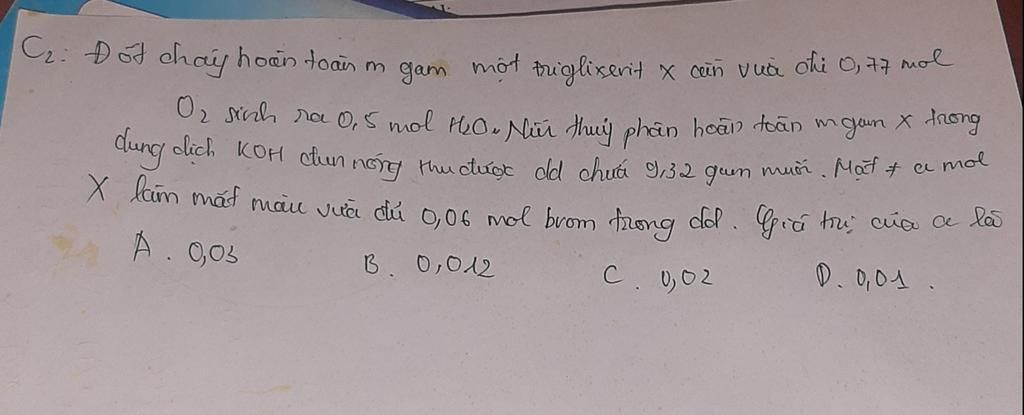 C2: Đốt cháy hoàn toàn m gam một triglixerit X cần vừa đủ 0,77 mol
O2 sinh ra 0,5 mol H2O. Nếu thuỷ phân hoàn toàn m gam X trong
dung dịch KOH đun nóng thu được dd chứa 9,32 gam muối. Mặt ≠ a mol
X làm mất màu vừa đủ 0,06 mol brom trong dd. Giá trị của a là
A. 0,03 B. 0,012 C. 0,02 D. 0,01.